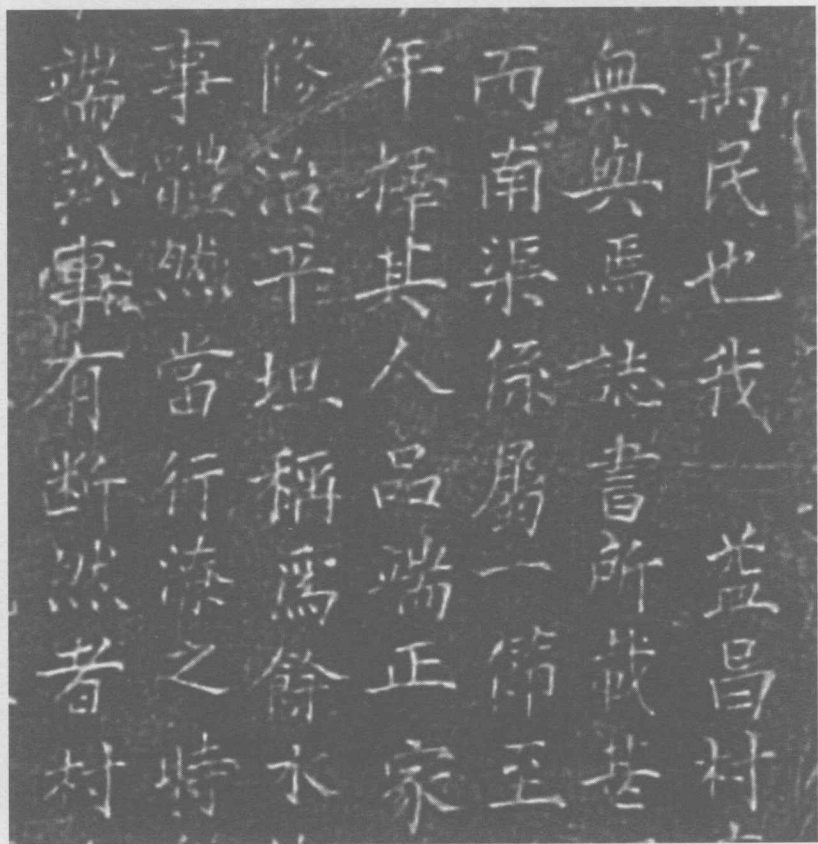 萬民也我 益昌村
無與焉誌書所載甚
而南渠係屬一節至
年擇其人品端正家
修治平坦稱爲餘水
事體然當行澆之時
端於軍有断然者村